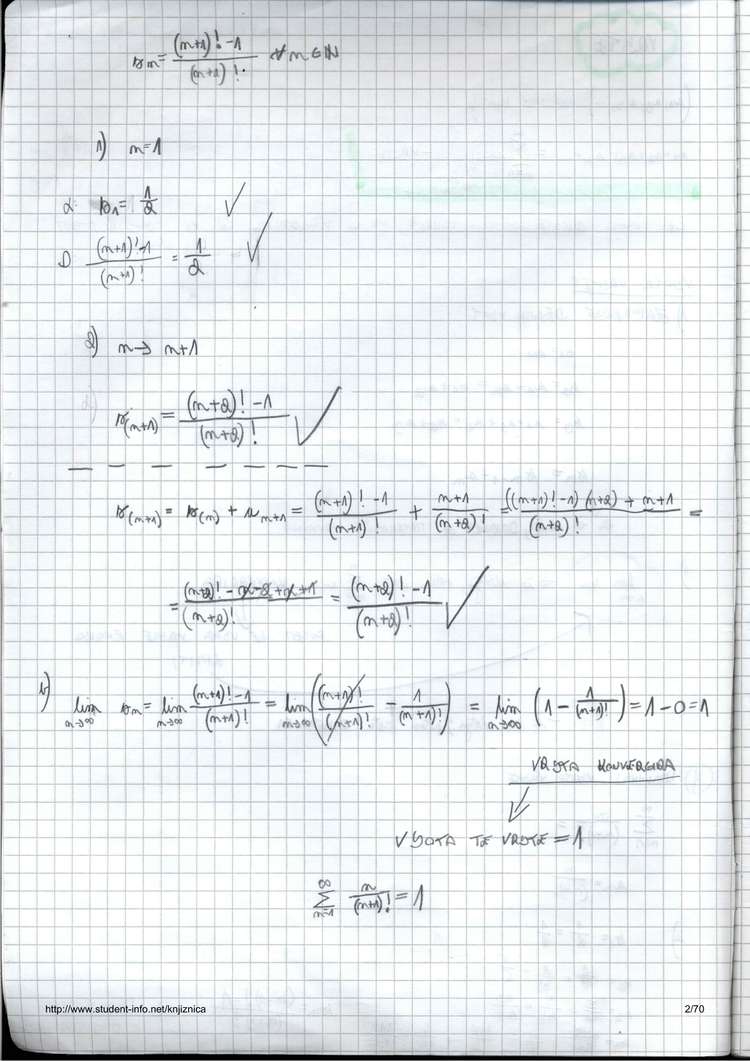 s_n = \frac{(n+1)! - 1}{(n+1)!} ∀ n ∈ ℕ
1) n = 1
L: s_1 = \frac{1}{2} ✓
D \frac{(n+1)! - 1}{(n+1)!} = \frac{1}{2} ✓
2) n → n+1
s_{(n+1)} = \frac{(n+2)! - 1}{(n+2)!} ✓
s_{(n+1)} = s_{(n)} + u_{n+1} = \frac{(n+1)! - 1}{(n+1)!} + \frac{n+1}{(n+2)!} = \frac{((n+1)! - 1)(n+2) + n+1}{(n+2)!} =
= \frac{(n+2)! - n - 2 + n + 1}{(n+2)!} = \frac{(n+2)! - 1}{(n+2)!} ✓
b) lim_{n→∞} s_n = lim_{n→∞} \frac{(n+1)! - 1}{(n+1)!} = lim_{n→∞} (\frac{(n+1)!}{(n+1)!} - \frac{1}{(n+1)!}) = lim_{n→∞} (1 - \frac{1}{(n+1)!}) = 1 - 0 = 1
VRSTA KONVERGIRA
VSOTA TE VRSTE = 1
\sum_{n=1}^{∞} \frac{n}{(n+1)!} = 1
http://www.student-info.net/knjiznica 2/70